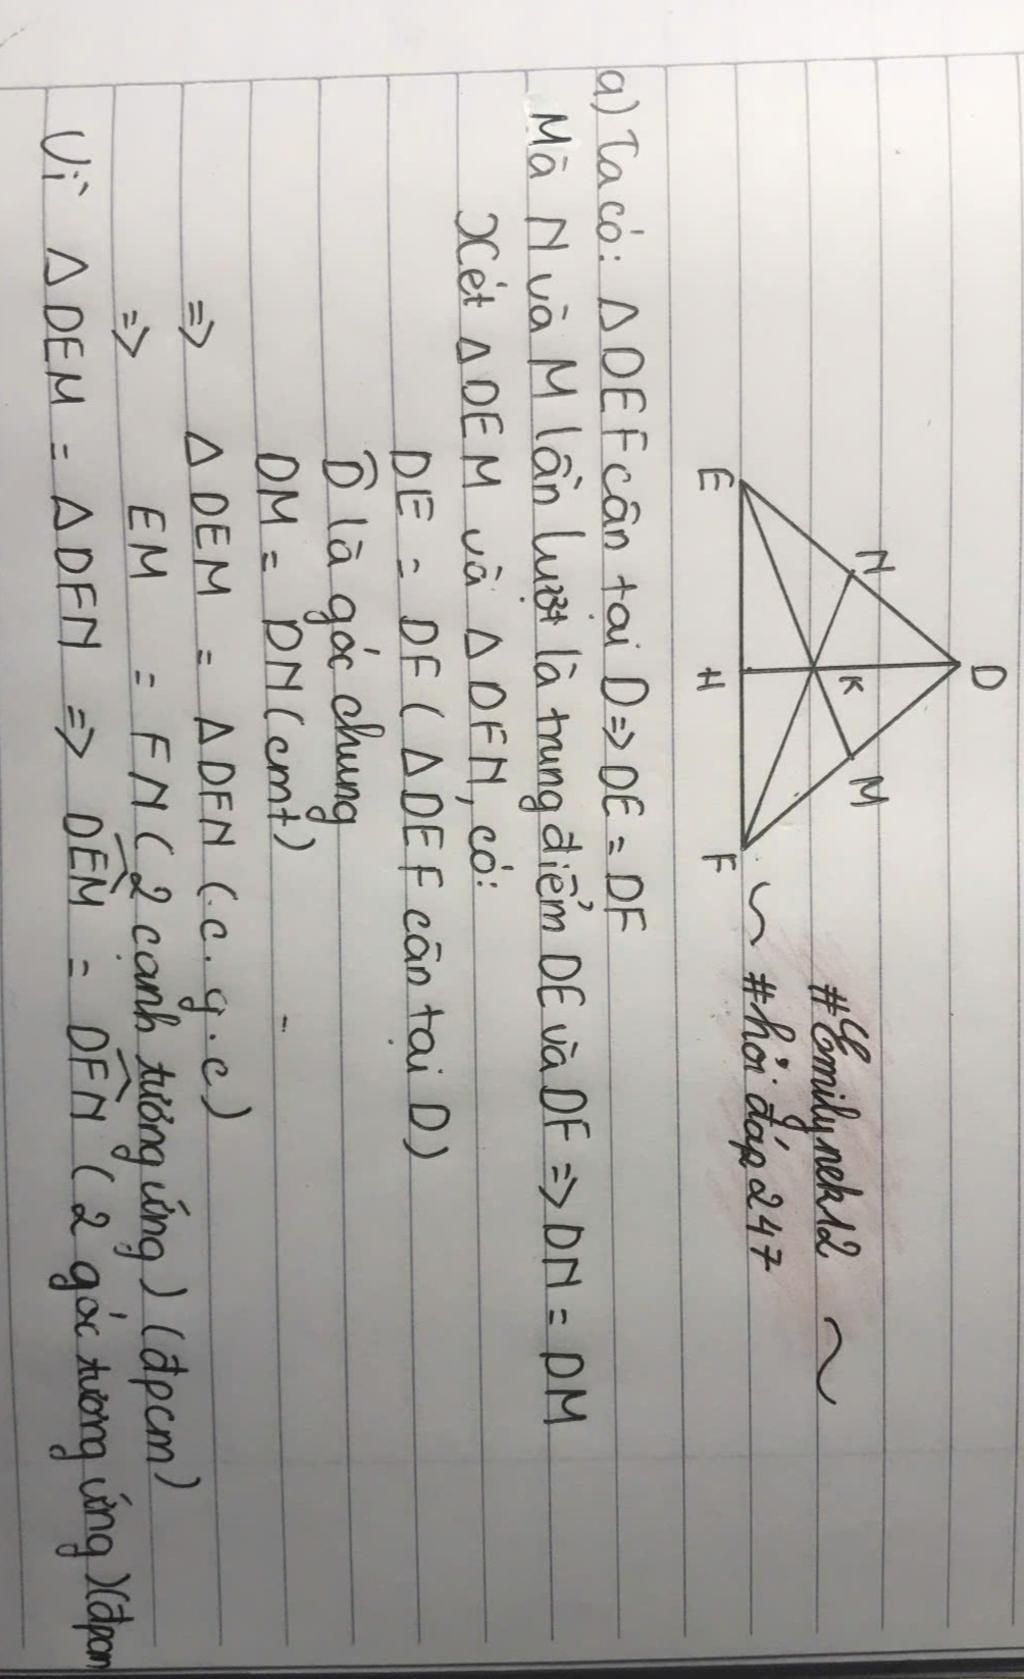 D
N
M
K
E
H
F
#Emilynek12
#hỏi đáp 247
a) Ta có: △DEF cân tại D => DE = DF
Mà N và M lần lượt là trung điểm DE và DF => DN = DM
Xét △DEM và △DFN, có:
DE = DF (△DEF cân tại D)
D̂ là góc chung
DM = DN (cmt)
=> △DEM = △DFN (c.g.c)
=> EM = FN (2 cạnh tương ứng) (đpcm)
Vì △DEM = △DFN => DÊM = DF̂N (2 góc tương ứng) (đpcm